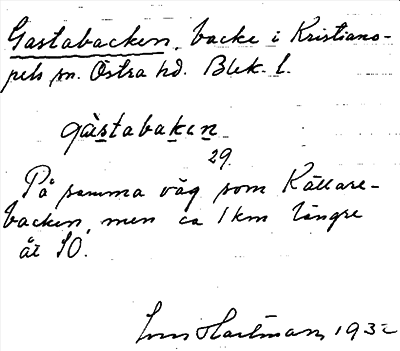 Gastabacken, backe i Kristiano-
pels sn. Östra hd. Blek. l.
gàstabaken
29
På samma väg som Källare-
backen, men ca 1 km längre
åt SO.
Hartman 1932